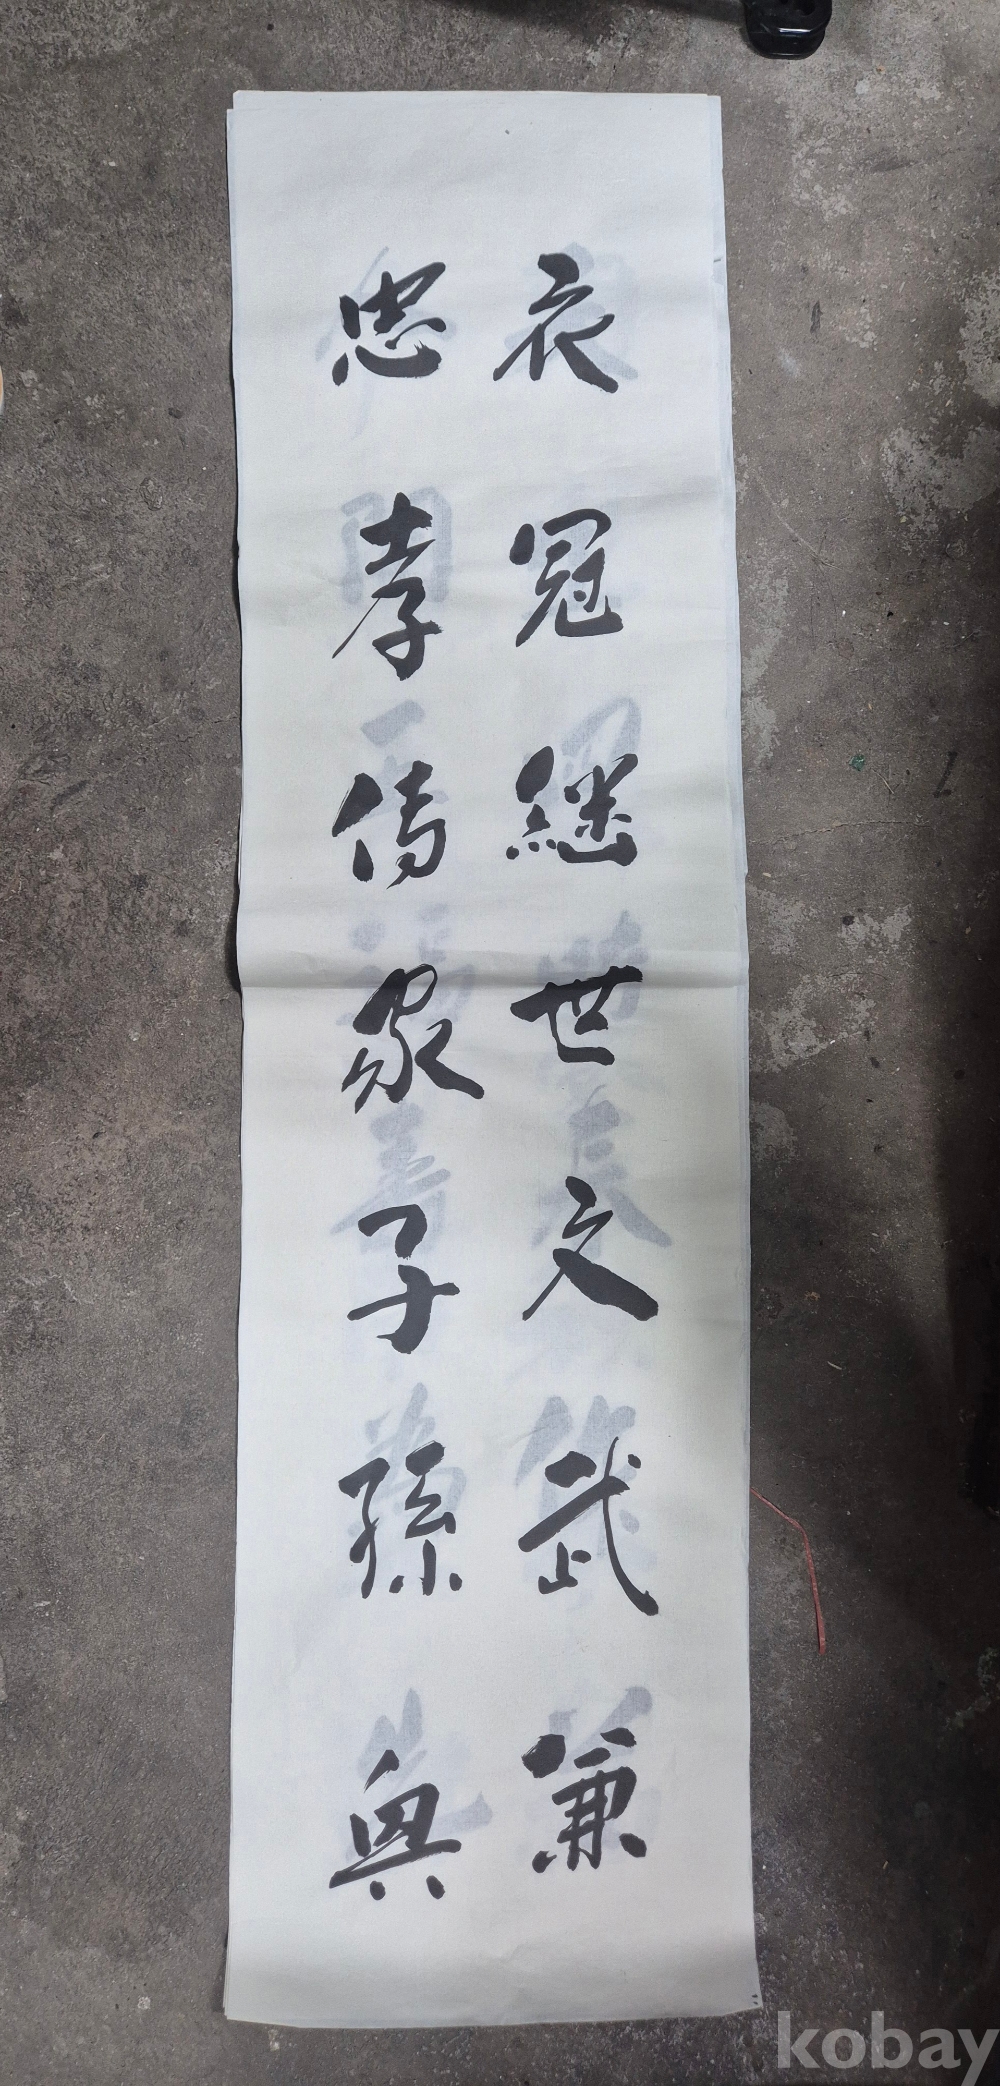 衣冠繼世文武兼
忠孝傳家子孫興
kobay